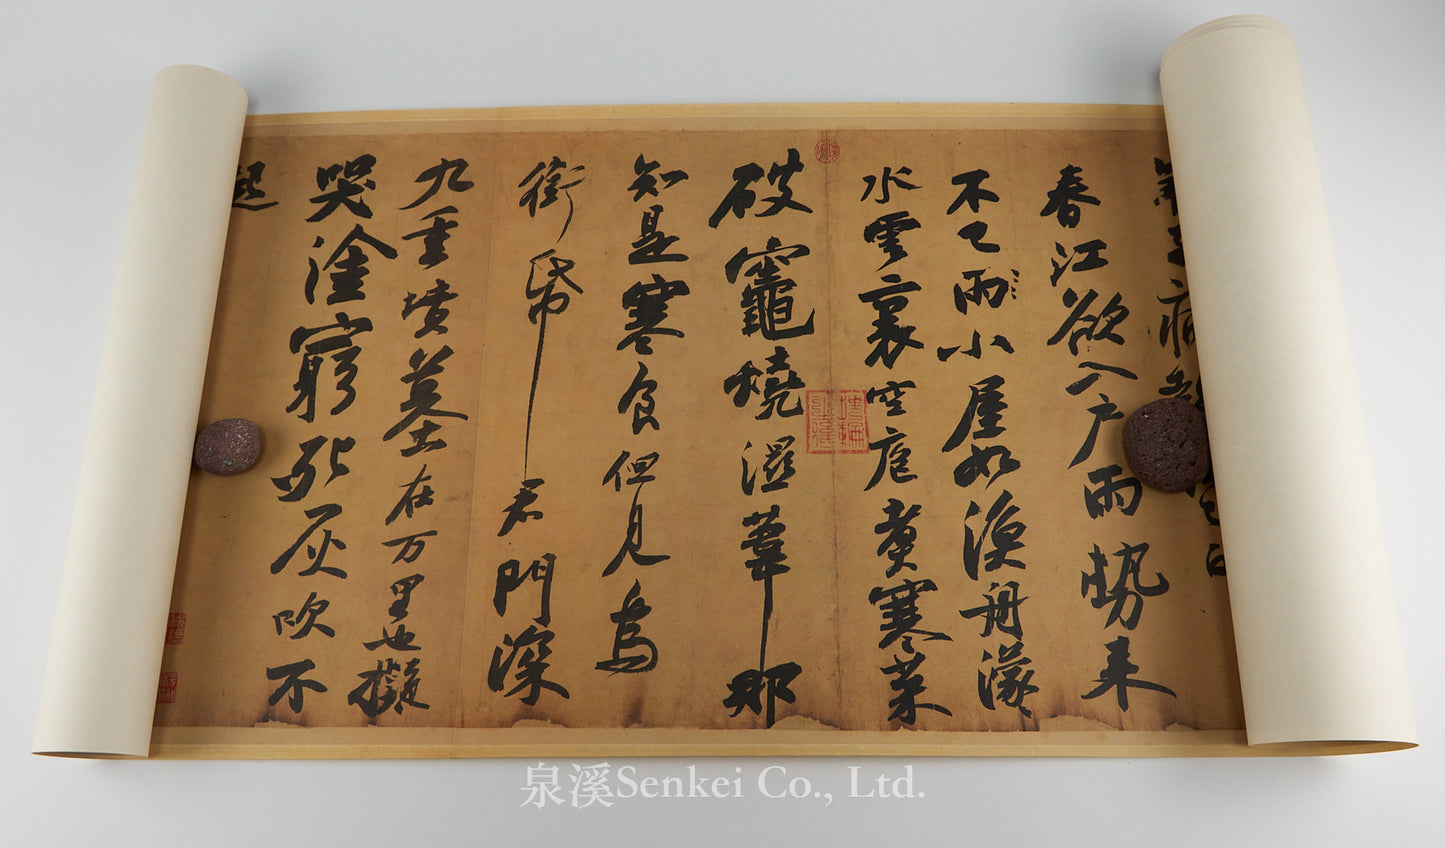 春江欲入戶雨勢来
不已雨小屋如漁舟濛
水雲裏空庖煮寒菜
破竈燒濕葦那
知是寒食但見烏
銜帋君門深
九重墳墓在万里也擬
哭塗窮死灰吹不
起
泉溪Senkei Co., Ltd.